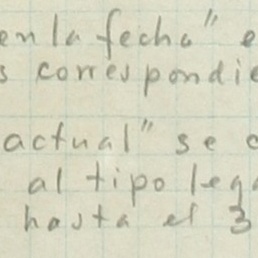 en la fecha" e
s correspondie
actual" se c
al tipo lega
hasta el 3